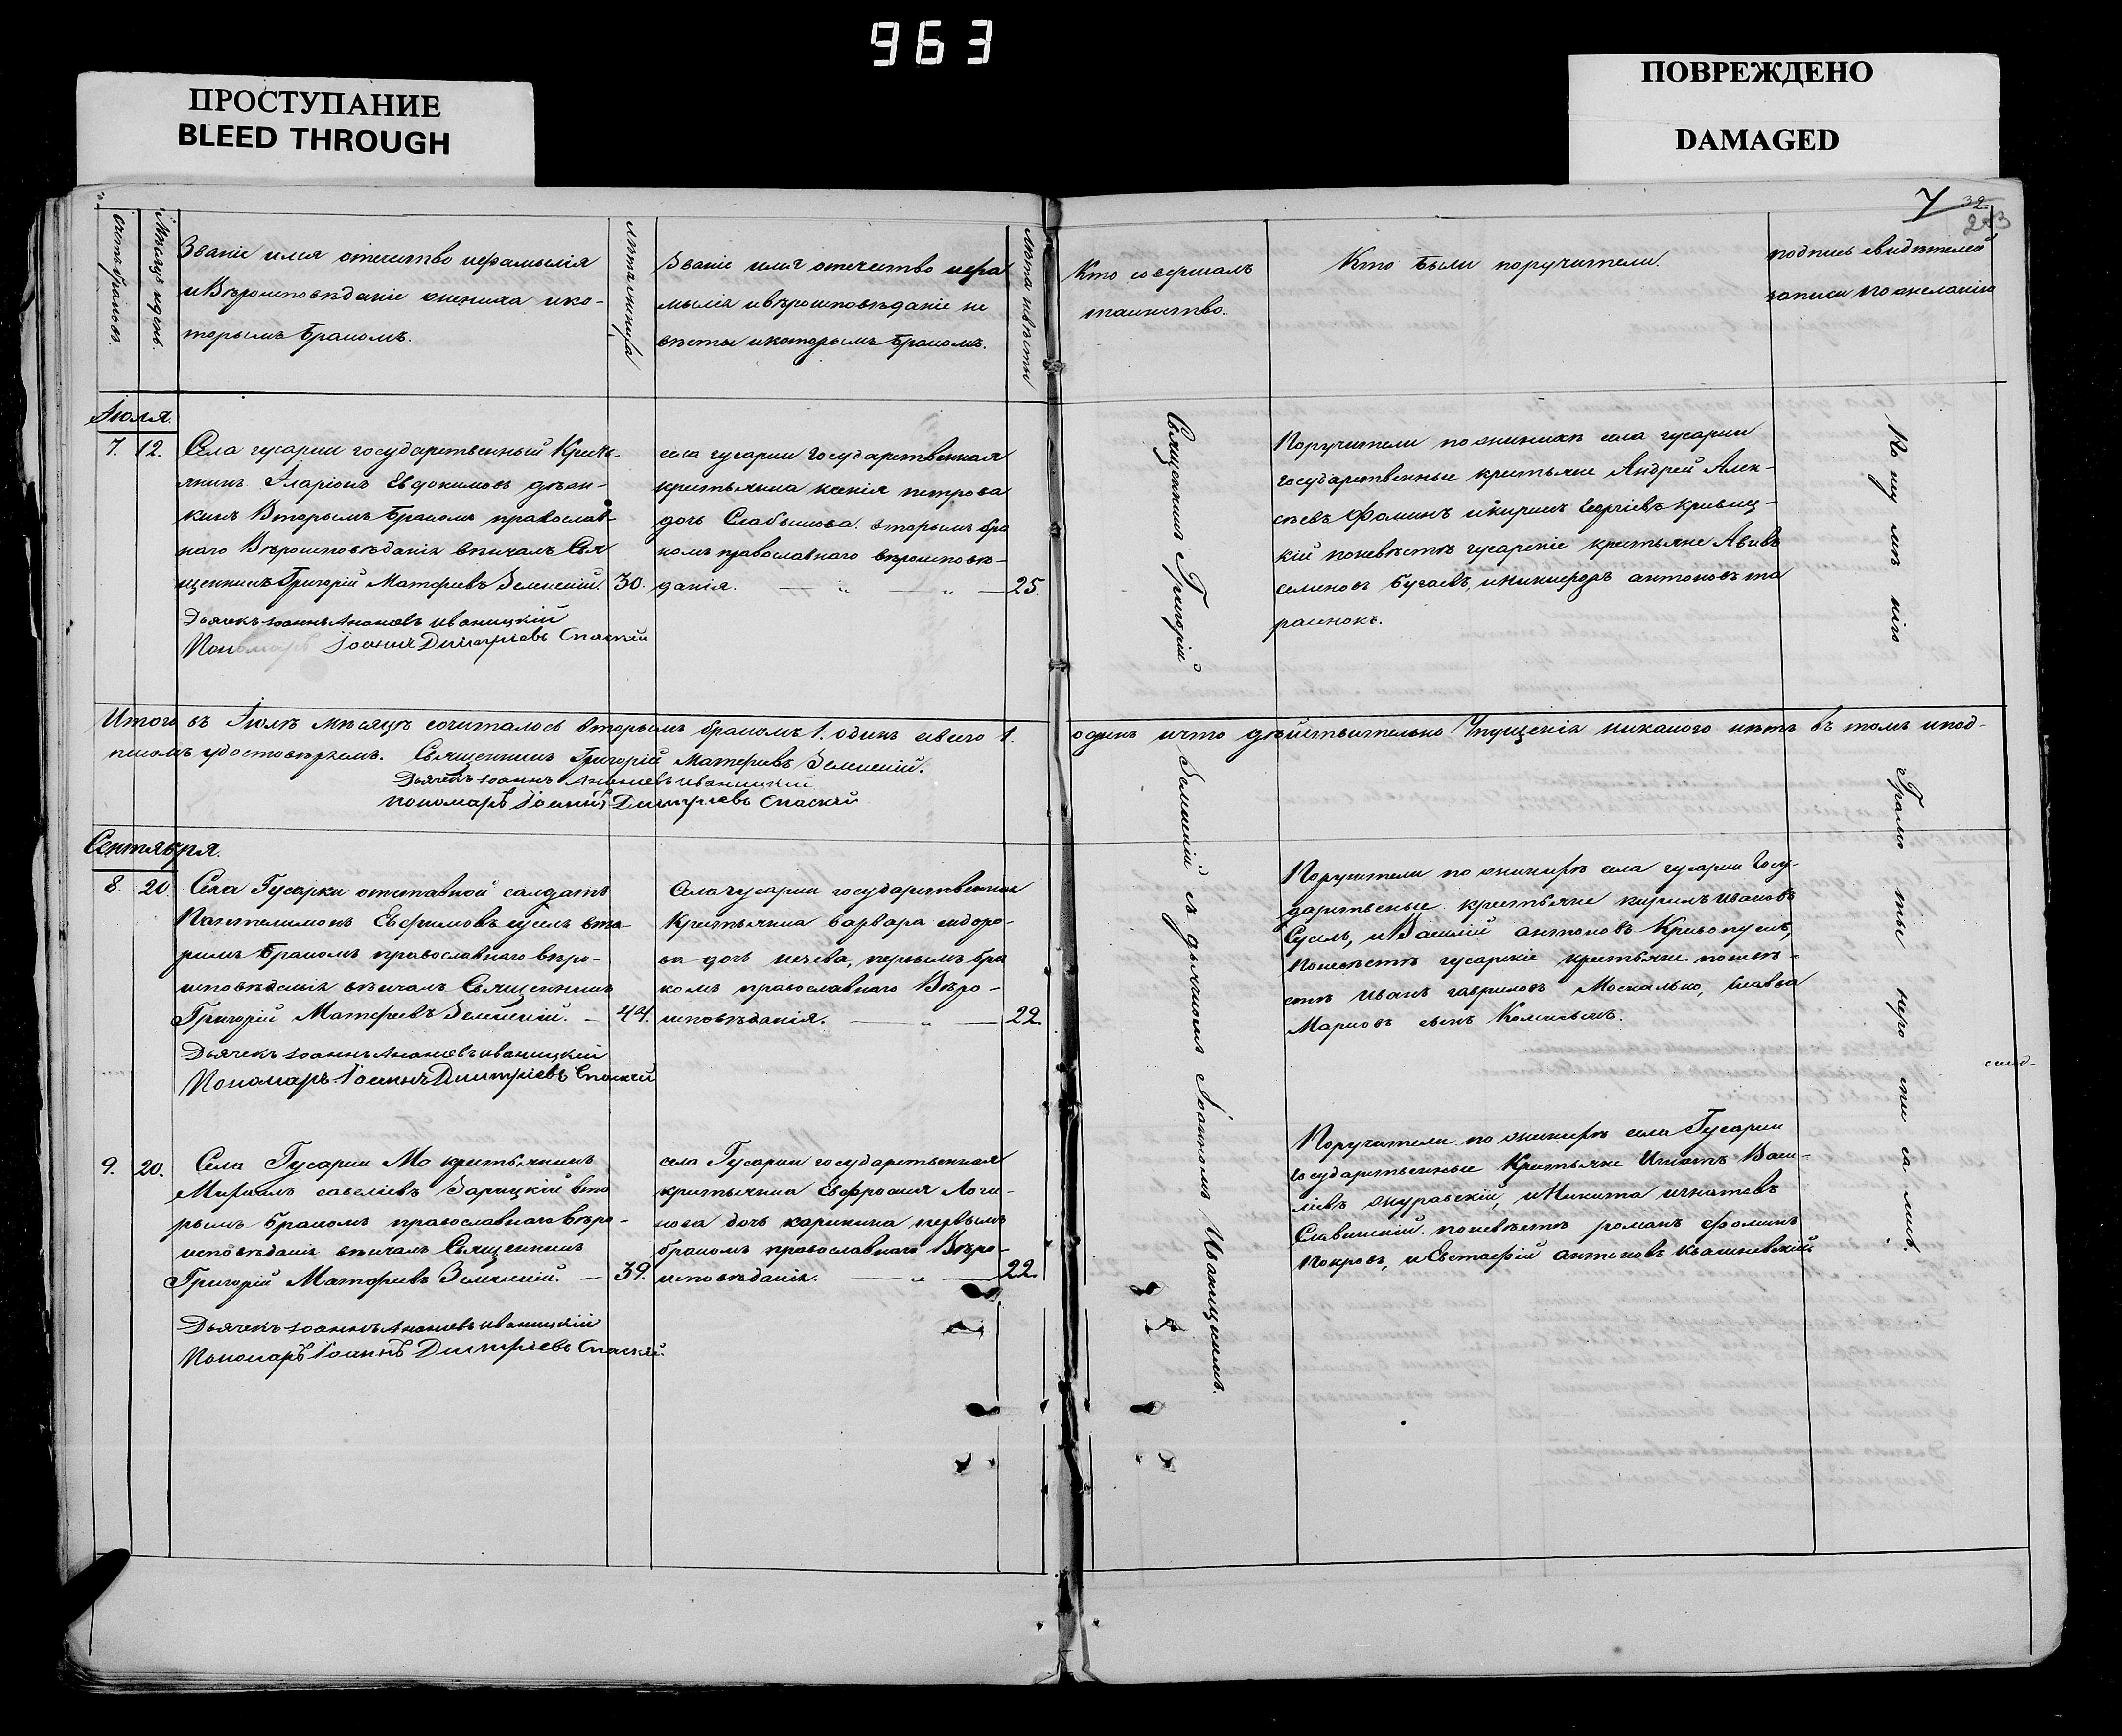 963
ПРОСТУПАНИЕ
BLEED THROUGH
ПОВРЕЖДЕНО
DAMAGED
7
32.
Счетъ браковъ.
Мѣсяцъ и день.
Званіе имя отечество и фамилія
и Вѣроисповѣданіе жениха и ко-
торымъ бракомъ.
лѣта жениха
Званіе имя отечество и фа
милія и вѣроисповѣданіе не
вѣсты и которымъ бракомъ.
лѣта невѣсты
Кто совершалъ
таинство.
Кто были поручители.
подпись свидѣтелей
записи по желанію
Іюля.
7. 12.
Села гусарки государственный Крестъ-
янинъ Іларіонъ Евдокимовъ
Вторымъ бракомъ православ-
наго Вѣроисповѣданія вѣнчалъ Свя
щенникъ Григорій Матфеевъ Зеленскій. 30.
Дьячекъ Іоаннъ Ананіевъ Иваницкій
Пономарь Іоаннъ Димитріевъ Спаскій
села гусарки государственная
крестьянка ксенія петрова
дочь Слабышова вторымъ бра
комъ православнаго вѣроисповѣ-
данія. 25.
Поручители по женихѣ села гусарки
государственные крестьяне Андрей Алек-
сѣевъ Фоминъ и кирилъ Георгіевъ кривиц-
кій по невѣстѣ гусарскіе крестьяне
семеновъ Бугаевъ, и никифоръ антоновъ та
раенокъ.
Итого въ Іюлѣ мѣсяцѣ сочиталось вторымъ бракомъ 1. одинъ а всего 1. одинъ и что дѣйствительно Упущенія никакого нѣтъ въ томъ и под-
писомъ удостовѣряемъ. Священникъ Григорій Матфеевъ Зеленскій.
Дьячекъ Іоаннъ Ананіевъ Иваницкій
Пономарь Іоаннъ Димитріевъ Спаскій
Священникъ Григорій Зеленскій съ дьячкомъ Іоанномъ Иваницкимъ.
Сентября.
8. 20
Села Гусарки отставной салдатъ
Пантелимонъ Евфимовъ вто-
рымъ бракомъ православнаго вѣро-
исповѣданія вѣнчалъ Священникъ
Григорій Матфеевъ Зеленскій. 44.
Дьячекъ Іоаннъ Ананіевъ Иваницкій
Пономарь Іоаннъ Димитріевъ Спаскій
Села гусарки государственная
Крестьянка варвара сидоро-
ва дочь нечева, первымъ бра
комъ православнаго Вѣро-
исповѣданія. 22.
Поручители по женихѣ села гусарки Госу-
дарственые крестьяне кирилъ ивановъ
и Василій антоновъ
По невѣстѣ гусарскіе крестьяне по невѣ-
стѣ иванъ гавриловъ Москалько, савва
Марковъ сынъ
9. 20.
Села Гусарки крестьянинъ
Михаилъ савеліевъ Зарицкій вто
рымъ бракомъ православнаго Вѣро-
исповѣданія вѣнчалъ Священникъ
Григорій Матфеевъ Зеленскій. 39.
Дьячекъ Іоаннъ Ананіевъ Иваницкій
Пономарь Іоаннъ Димитріевъ Спаскій.
села Гусарки государственная
крестьянка Евфросиія Логи-
нова дочь карикина первымъ
бракомъ православнаго Вѣро-
исповѣданія. 22.
Поручители по женихѣ села Гусарки
государственные Крестьяне Игнатъ Васи-
ліевъ журавскій, и Никита игнатовъ
Славинскій. по невѣстѣ романъ фоминъ
покровъ, и Евстафій антоновъ